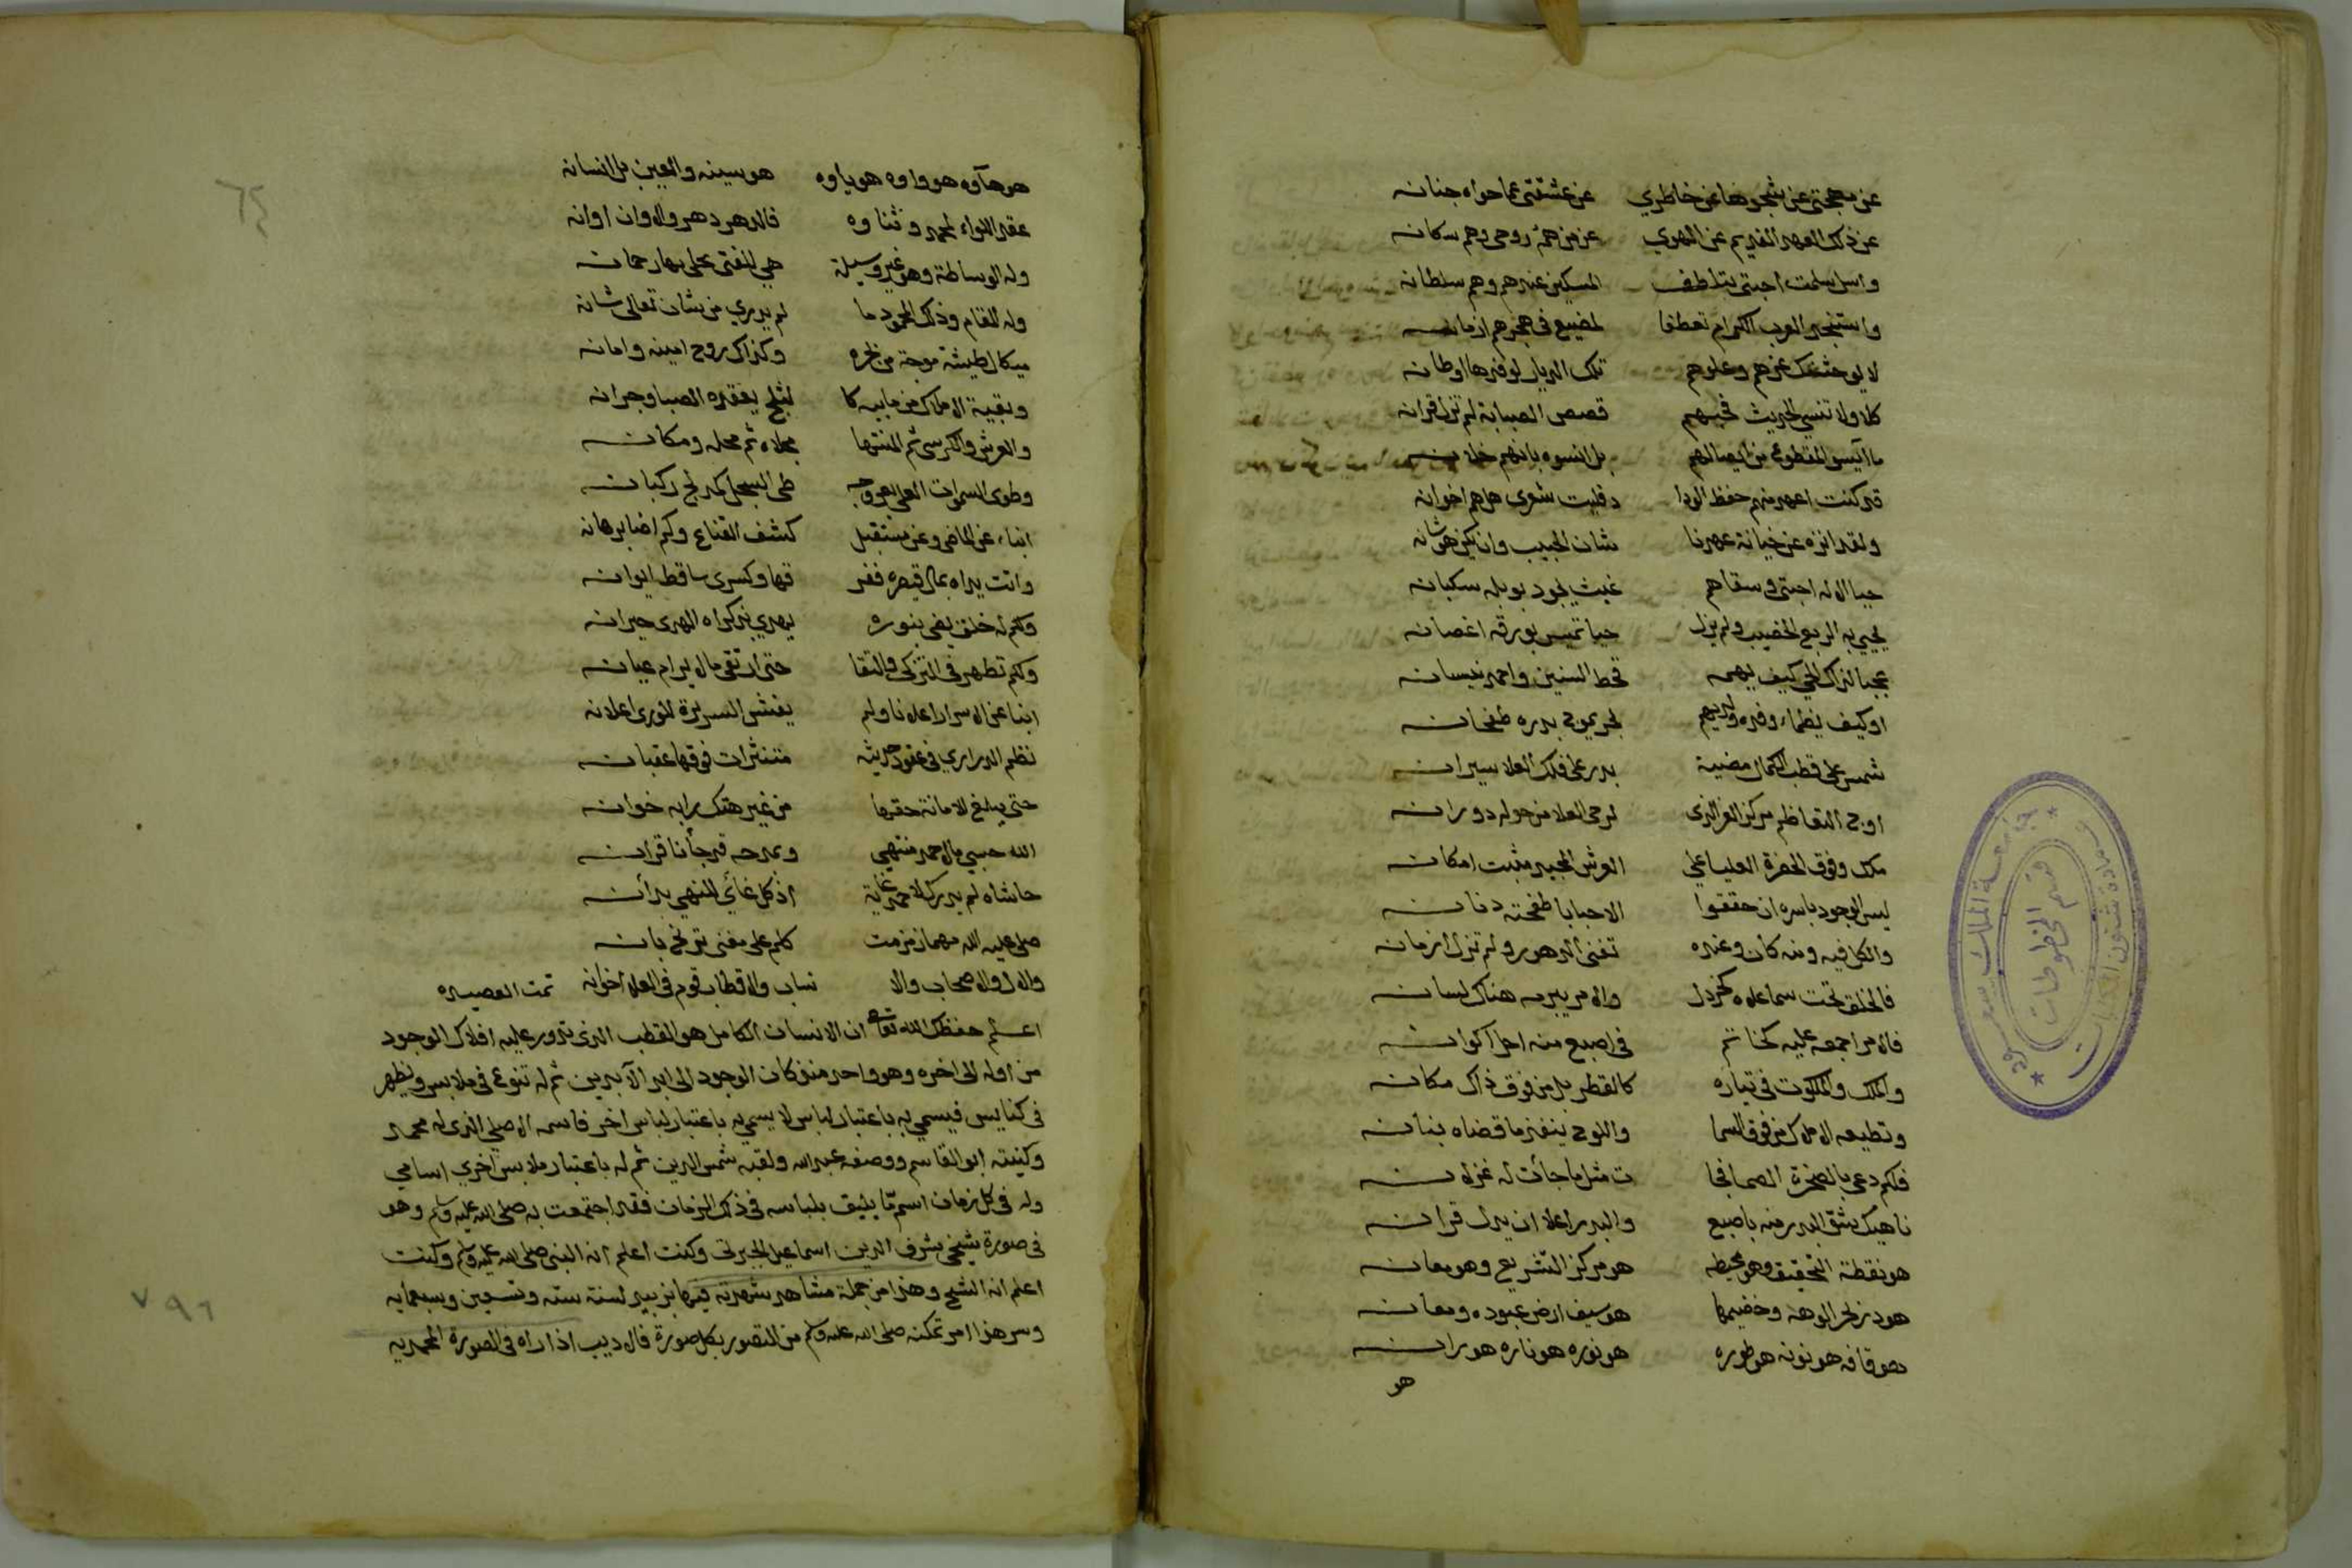 عن مهجتي عن شجوها عن خاطري عن عشقتي عما حواه جنانه
عن ذلك العهد القديم عن الهوى عن من هم روحي وهم سكانه
واسل سلمت احبتي بتلطف المسكين عندهم وهم سلطانه
واستنجد العرب الكرام تعطفا لمضيع في هجرهم ازمانه
لا يوحشنك عزهم وعلوهم تلك الديار لوفدها اوطانه
كلا ولا تنسى الحديث فحبهم قصص الصبابة لم تزل قرانه
ما آيس المقطوع من ايصالهم بل انسوه بانهم خلانه
قد كنت اعهد منهم حفظ الودا د فليت شعري هل هم اخوانه
ولقد انزه عن خيانة عهدنا شان الحبيب وان يكن هو شانه
حيا الاله احبتي وسقاهم غيث يجود بوبله سكبانه
يحيي به الربع الخصيب ولم يزل حيا تميس بورقه اغصانه
عجبا لذاك الحي كيف يهمه قحط السنين واحمد نيسانه
او كيف يظماء وفده ولديهم بحر يموج بدره طفحانه
شمس على قطب الكمال مضية بدر على فلك العلا سيرانه
اوج التعاظم مركز العز الذي لرحى العلا من حوله دورانه
ملك وفوق الحضرة العليا على العرش المجيد مثبت امكانه
ليس الوجود باسره ان حققوا الا حبابا طفحته دنانه
والكل فيه ومنه كان وعنده تفنى الدهور ولم تزل ازمانه
فالخلق تحت سما علاه كخردل والامر يبرمه هناك لسانه
فالامر اجمعه عليه كخاتم في اصبع منه اجل اكوانه
والملك والملكوت في تياره كالقطر بل من فوق ذاك مكانه
وتطيعه الاملاك من فوق السما واللوح ينفذ ما قضاه بنانه
فلكم دعي بالصخرة الصما فجا ت مثل ما جأت له غزلانه
ناهيك شق البدر منه باصبع والبدر اعلا ان يزل قرانه
هو نقطة التحقيق وهو محيطه هو مركز التشريع وهو مكانه
هو در بحر الوهة وخضيمها هو سيف ارض عبوده وسنانه
هو قافه هو نونه هو طوره هو نوره هو ناره هو رانه
هو
جامعة الملك سعود
عمادة شئون المكتبات
قسم المخطوطات
٦٤
هو هآوه هو واوه هو ياوه هو سينه والعين بل انسانه
عقد اللواء لحمد وثناوه فالدهر دهر والاوان اوانه
وله الوساطة وهو غير وسيلة هي للفتى يجلى بها رحمانه
وله المقام وذلك المحمود ما لم يدر من شان تعالى شانه
ميكال طيشة موجة من بحره وكذاك روح امينه وامانه
وبقية الاملاك من مايه كا لثلج يعقده الصبا وجرانه
والعرش والكرسي ثم المنتها مجلاه ثم محله ومكانه
وطوى السموات العلى بعروجه طي السجل كمدلج ركبانه
انباء عن الماضي وعن مستقبل كشف القناع وكم اضا برهانه
واتت يداه بمال قيصره ففر قها وكسرى ساقط ايوانه
ولكم له خلق يضي بنوره يهدي بذكراه الهدى حيرانه
ولكم تطهر في التزكي والتقا حتى ارتقى ما لا يرام عيانه
انبا عن الاسرار اعلانا ولم يفش السريرة للورى اعلانه
نظم الدراري في عقود حديثه متنثرات فوقها عقيانه
حتى يبلغ للامانة حقها من غير هتك رابه خوانه
الله حسبي ما لاحمد منتهى وبمدحه قد جأنا قرانه
حاشاه لم يدرك لاحمد غاية اذ كل غاي للنهى بدأنه
صلى عليه الله مهما زمزمت كلم على معنى تريخ بانه
والال والاصحاب والا نساب والاقطاب قوم في العلا اخوانه تمت القصيده
اعلم حفظك الله تعالى ان الانسان الكامل هو القطب الذي تدور عليه افلاك الوجود
من اوله الى اخره وهو واحد منذ كان الوجود الى ابد الآبدين ثم له تنوع في ملابس ويظهر
في كنايس فيسمى به باعتبار لباس لا يسمى به باعتبار لباس اخر فاسمه الاصلي الذي له محمد
وكنيته ابو القاسم ووصفه عبد الله ولقبه شمس الدين ثم له باعتبار ملابس اخري اسامي
وله في كل زمان اسم ما يليق بلباسه في ذلك الزمان فقد اجتمعت به صلى الله عليه وسلم وهو
في صورة شيخي شرف الدين اسماعيل الجبرتي وكنت اعلم انه النبي صلى الله عليه وسلم وكنت
اعلم انه الشيخ وهذا من جملة مشاهد شهدته فيها بزبيد لسنة سته وتسعين وسبعمايه
وسر هذا امر تمكنه صلى الله عليه وسلم من التصور بكل صورة فالاديب اذا راه في الصورة المحمديه
٧٩٦